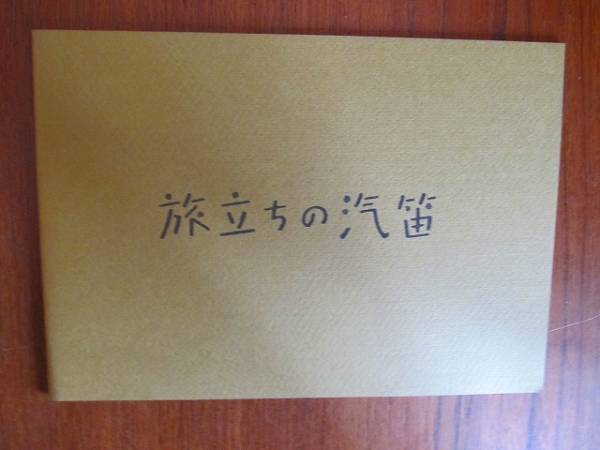 旅立ちの汽笛